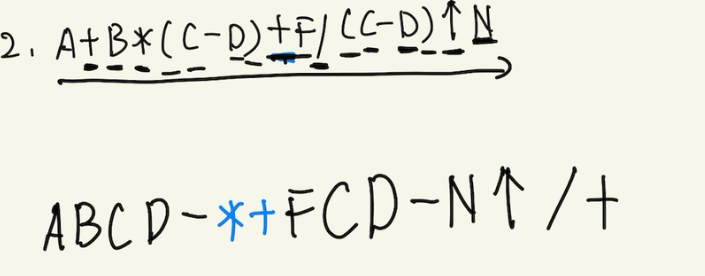 2. A+B*(C-D)+F/(C-D)↑N
ABCD-*+FCD-N↑/+